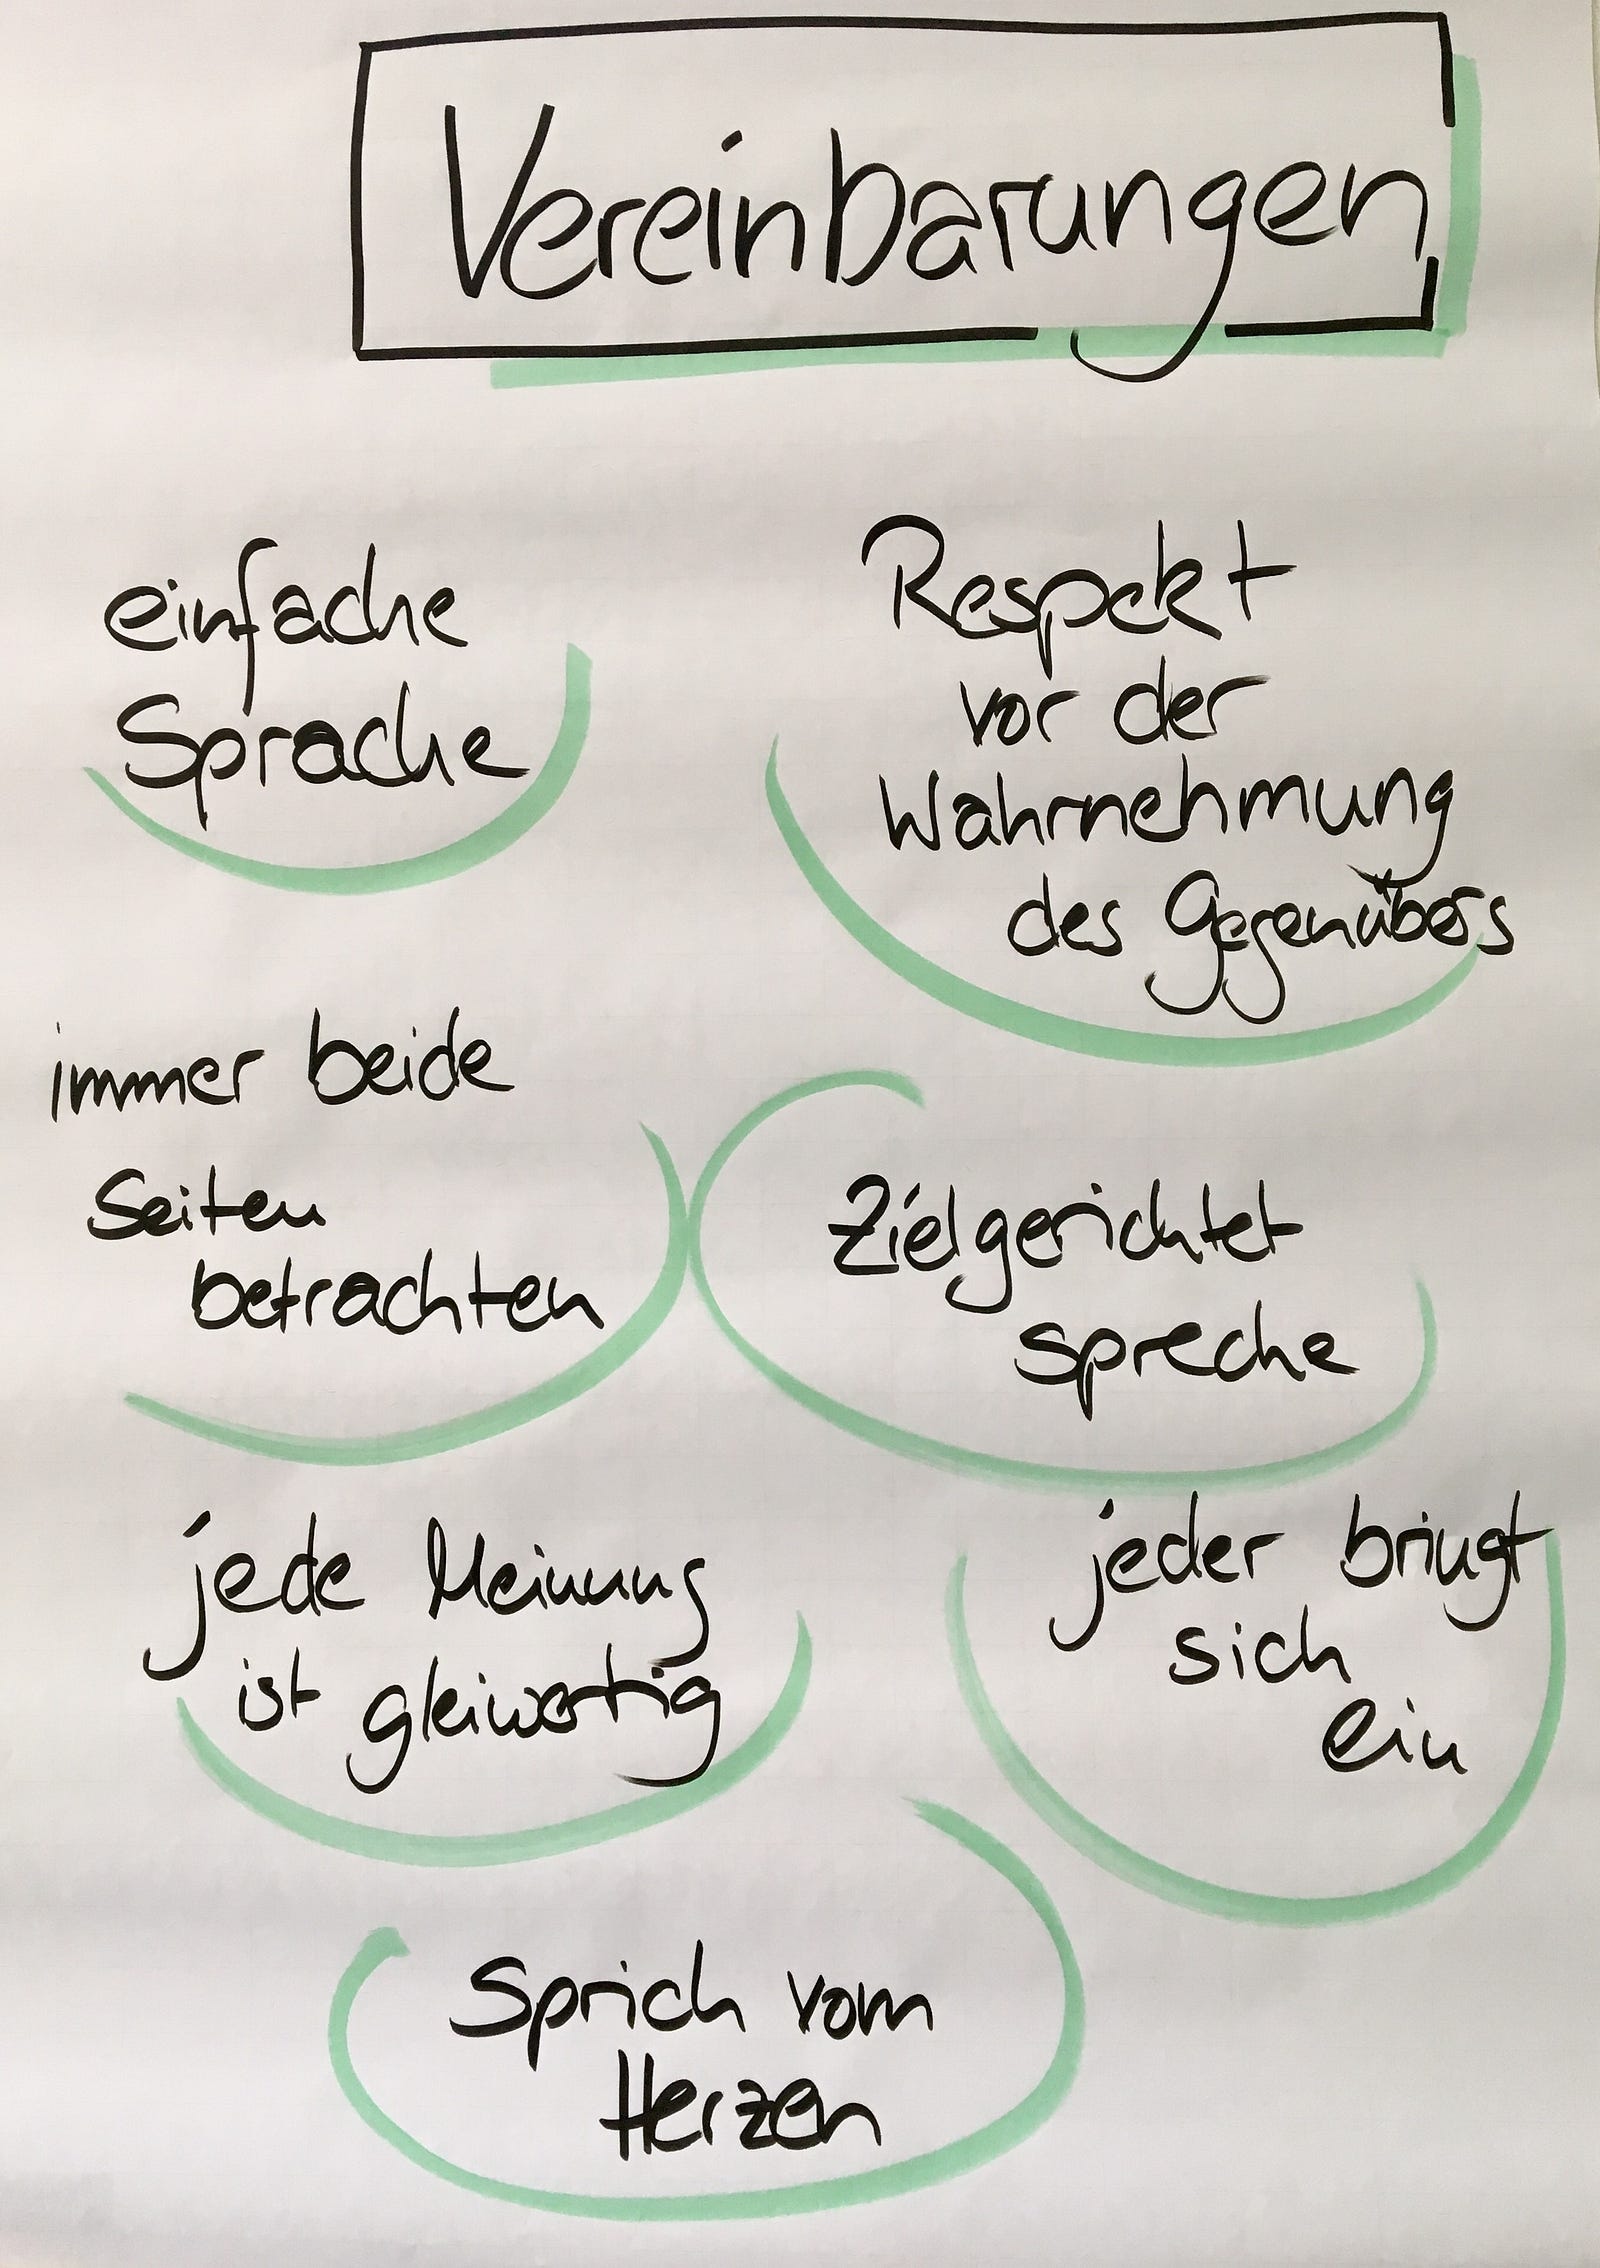 Vereinbarungen
einfache
Sprache
Respekt
vor der
Wahrnehmung
des Gegenübers
immer beide
Seiten
betrachten
Zielgerichtet
spreche
jede Meinung
ist gleiwertig
jeder bringt
sich
ein
Sprich vom
Herzen